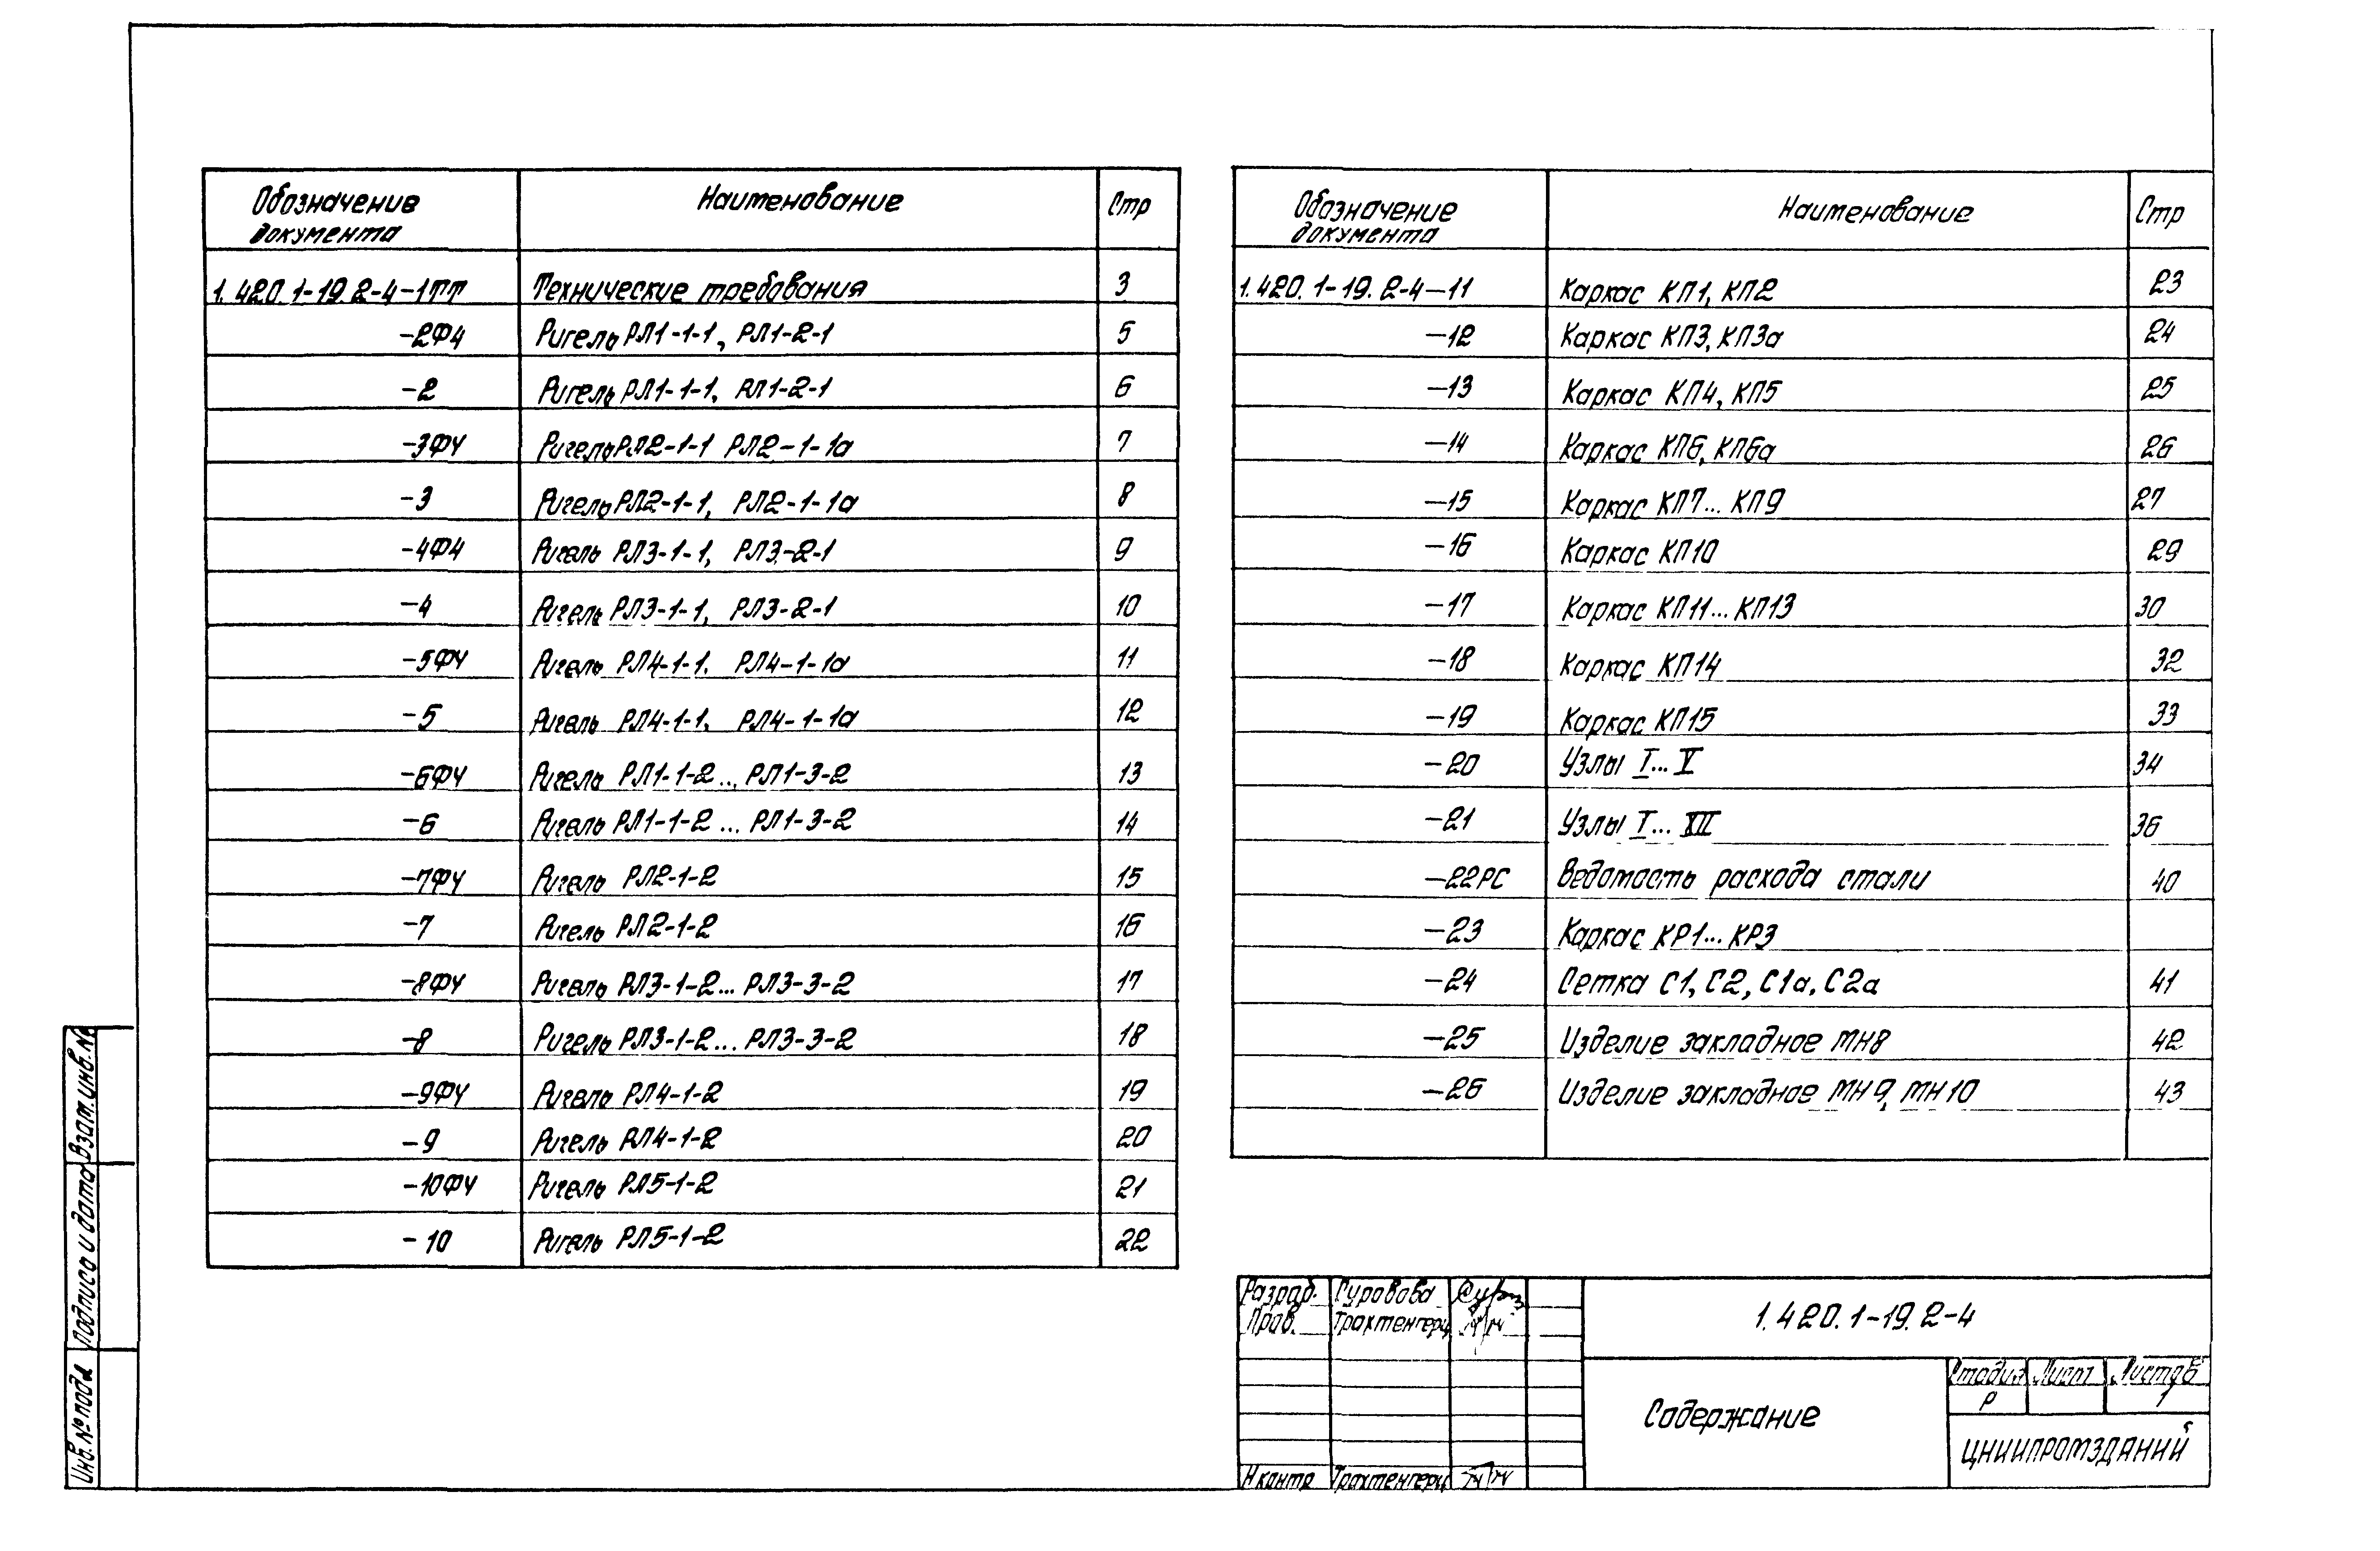 Обозначение документа Наименование Стр
1.420.1-19.2-4-1ТТ Технические требования 3
-2Ф4 Ригель РЛ1-1-1, РЛ1-2-1 5
-2 Ригель РЛ1-1-1, РЛ1-2-1 6
-3ФЧ Ригель РЛ2-1-1 РЛ2-1-1а 7
-3 Ригель РЛ2-1-1, РЛ2-1-1а 8
-4Ф4 Ригель РЛ3-1-1, РЛ3-2-1 9
-4 Ригель РЛ3-1-1, РЛ3-2-1 10
-5ФЧ Ригель РЛ4-1-1. РЛ4-1-1а 11
-5 Ригель РЛ4-1-1. РЛ4-1-1а 12
-6ФЧ Ригель РЛ1-1-2... РЛ1-3-2 13
-6 Ригель РЛ1-1-2... РЛ1-3-2 14
-7ФЧ Ригель РЛ2-1-2 15
-7 Ригель РЛ2-1-2 16
-8ФЧ Ригель РЛ3-1-2... РЛ3-3-2 17
-8 Ригель РЛ3-1-2... РЛ3-3-2 18
-9ФЧ Ригель РЛ4-1-2 19
-9 Ригель РЛ4-1-2 20
-10ФЧ Ригель РЛ5-1-2 21
-10 Ригель РЛ5-1-2 22
Обозначение документа Наименование Стр
1.420.1-19.2-4-11 Каркас КП1, КП2 23
-12 Каркас КП3, КП3а 24
-13 Каркас КП4, КП5 25
-14 Каркас КП6, КП6а 26
-15 Каркас КП7... КП9 27
-16 Каркас КП10 29
-17 Каркас КП11... КП13 30
-18 Каркас КП14 32
-19 Каркас КП15 33
-20 Узлы I... V 34
-21 Узлы I... XII 36
-22РС Ведомость расхода стали 40
-23 Каркас КР1... КР3
-24 Сетка С1, С2, С1а, С2а 41
-25 Изделие закладное МН8 42
-26 Изделие закладное МН9, МН10 43
Разраб. Суровова
Пров. Трахтенгерц
Н контр Трахтенгерц
1.420.1-19.2-4
Содержание
Стадия Лист Листов
Р 1
ЦНИИПРОМЗДАНИЙ
Взам. инв. №
Подпись и дата
Инв. № подл